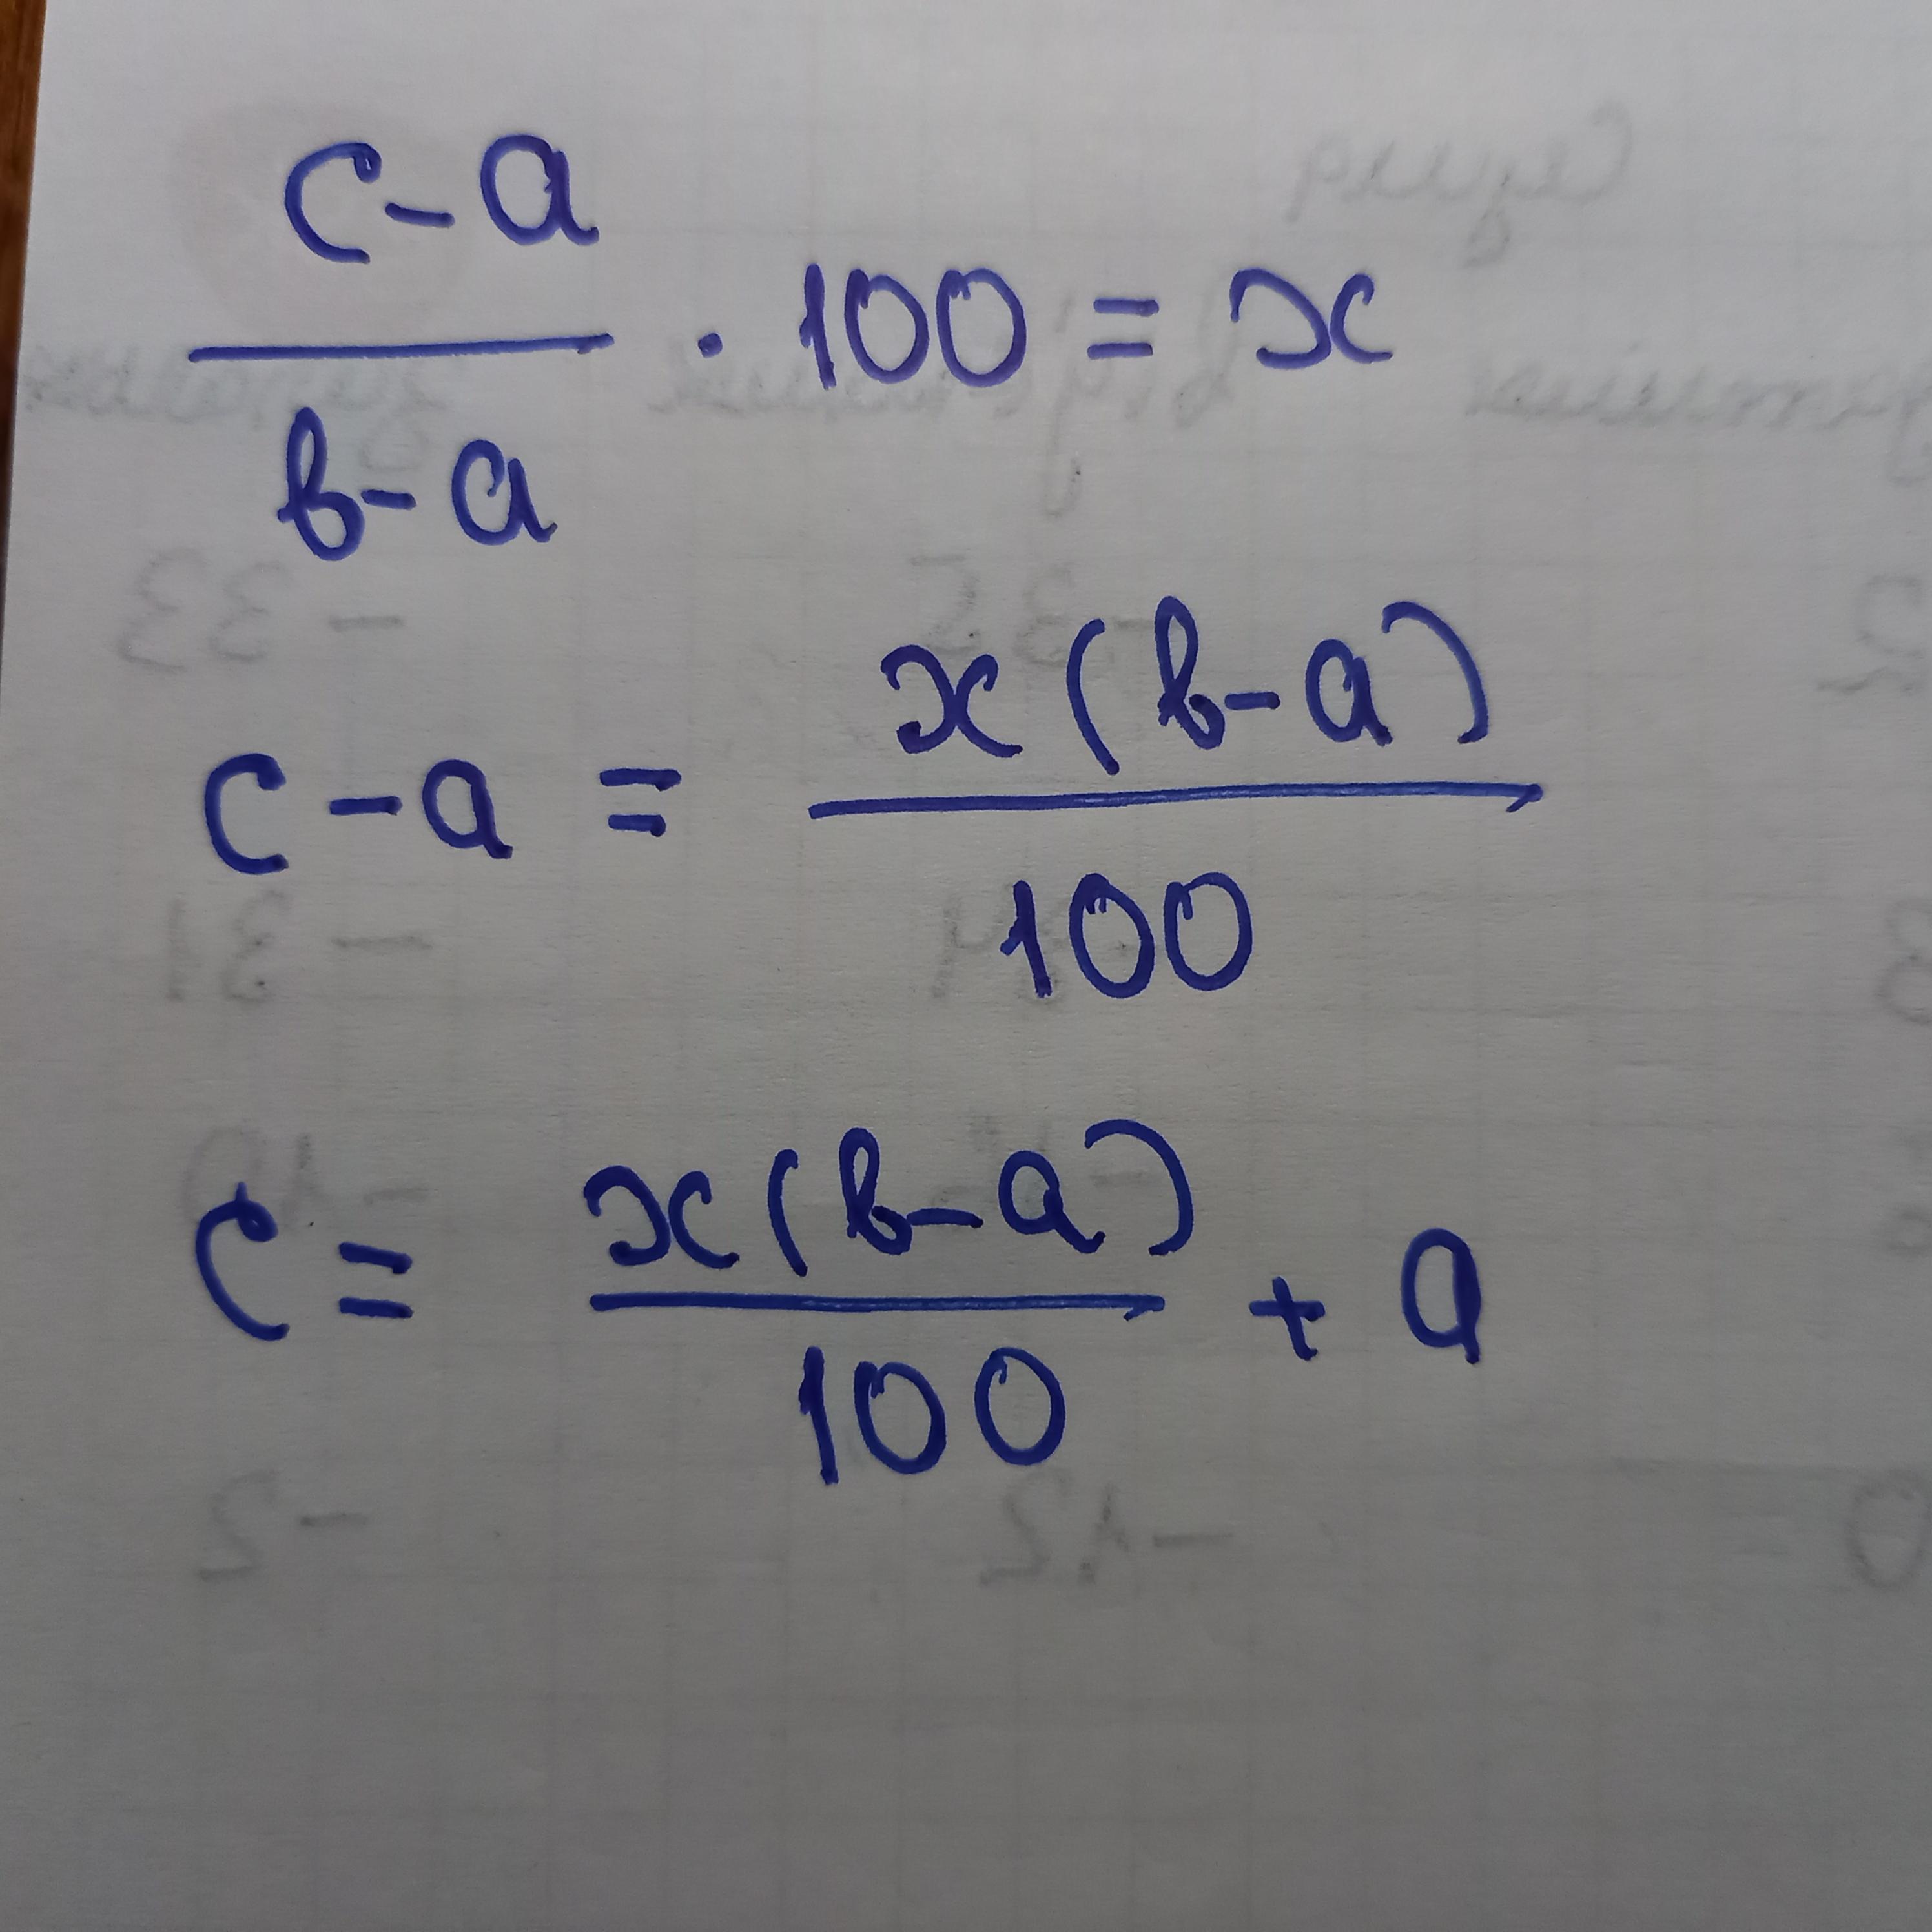 c-a / b-a · 100 = x
c-a = x(b-a) / 100
c = x(b-a) / 100 + a